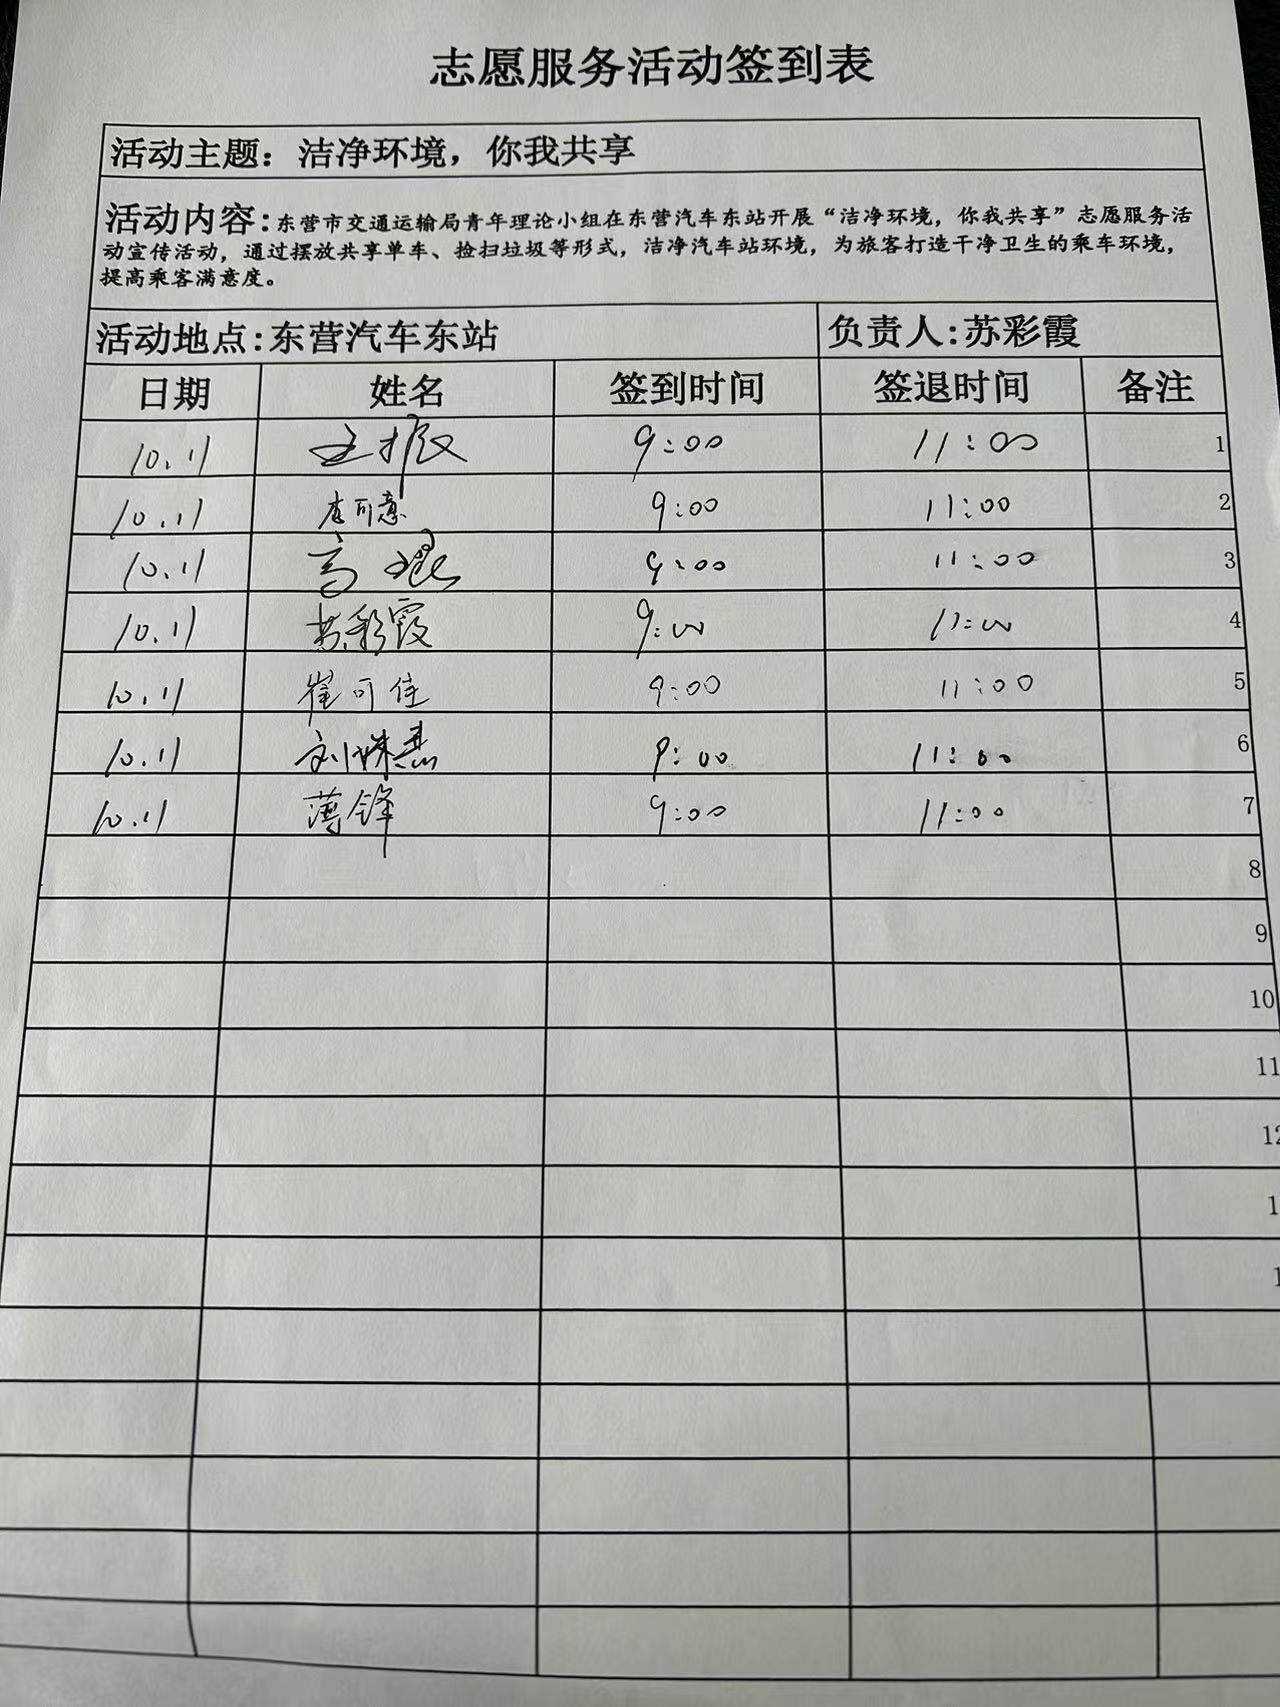 志愿服务活动签到表
活动主题：洁净环境，你我共享
活动内容：东营市交通运输局青年理论小组在东营汽车东站开展“洁净环境，你我共享”志愿服务活
动宣传活动，通过摆放共享单车、捡扫垃圾等形式，洁净汽车站环境，为旅客打造干净卫生的乘车环境，
提高乘客满意度。
活动地点:东营汽车东站 负责人:苏彩霞
日期 姓名 签到时间 签退时间 备注
10.11 王振 9:00 11:00 1
10.11 李可意 9:00 11:00 2
10.11 高琨 9:00 11:00 3
10.11 苏彩霞 9:00 11:00 4
10.11 崔可佳 9:00 11:00 5
10.11 刘姝燕 9:00 11:00 6
10.11 薄锋 9:00 11:00 7
8
9
10
11